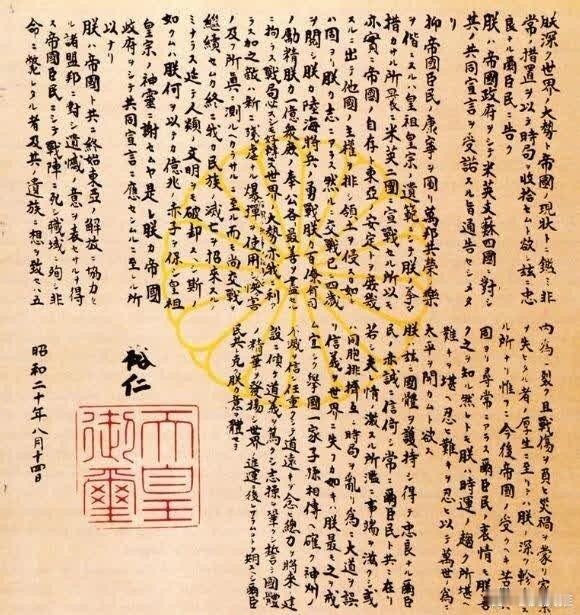 朕深ク世界ノ大勢ト帝國ノ現状トニ鑑ミ非
常ノ措置ヲ以テ時局ヲ收拾セムト欲シ茲ニ忠
良ナル爾臣民ニ告ク
朕ハ帝國政府ヲシテ米英支蘇四國ニ對シ
其ノ共同宣言ヲ受諾スル旨通告セシメタ
リ
抑〻帝國臣民ノ康寧ヲ圖リ萬邦共榮ノ樂
ヲ偕ニスルハ皇祖皇宗ノ遺範ニシテ朕ノ拳々
措カサル所曩ニ米英二國ニ宣戰セル所以モ
亦實ニ帝國ノ自存ト東亞ノ安定トヲ庶幾
スルニ出テ他國ノ主權ヲ排シ領土ヲ侵スカ如
キハ固ヨリ朕カ志ニアラス然ルニ交戰已ニ四歳
ヲ閲シ朕カ陸海將兵ノ勇戰朕カ百僚有司
ノ勵精朕カ一億衆庶ノ奉公各〻最善ヲ盡セ
ルニ拘ラス戰局必スシモ好轉セス世界ノ大勢亦我ニ利ア
ラス加之敵ハ新ニ殘虐ナル爆彈ヲ使用シ慘害
ノ及フ所眞ニ測ルヘカラサルニ至ル而モ尚交戰ヲ
繼續セムカ終ニ我カ民族ノ滅亡ヲ招來スルノ
ミナラス延テ人類ノ文明ヲモ破却スヘシ斯ノ
如クムハ朕何ヲ以テカ億兆ノ赤子ヲ保シ皇祖
皇宗ノ神靈ニ謝セムヤ是レ朕カ帝國
政府ヲシテ共同宣言ニ應セシムルニ至レル所
以ナリ
朕ハ帝國ト共ニ終始東亞ノ解放ニ協力セ
ル諸盟邦ニ對シ遺憾ノ意ヲ表セサルヲ得
ス帝國臣民ニシテ戰陣ニ死シ職域ニ殉シ非
命ニ斃レタル者及其ノ遺族ニ想ヲ致セハ五
内爲ニ裂ク且戰傷ヲ負ヒ災禍ヲ蒙リ家
ヲ失ヒタル者ノ厚生ニ至リテハ朕ノ深ク軫
所ナリ惟フニ今後帝國ノ受クヘキ苦
固ヨリ尋常ニアラス爾臣民ノ衷情モ朕
ク之ヲ知ル然レトモ朕ハ時運ノ趨ク所堪ヘ
難キヲ堪ヘ忍ヒ難キヲ忍ヒ以テ萬世ノ爲ニ
太平ヲ開カムト欲ス
朕ハ茲ニ國體ヲ護持シ得テ忠良ナル爾臣
民ノ赤誠ニ信倚シ常ニ爾臣民ト共ニ在リ
若シ夫レ情ノ激スル所濫ニ事端ヲ滋クシ或
ハ同胞排擠互ニ時局ヲ亂リ爲ニ大道ヲ誤
リ信義ヲ世界ニ失フカ如キハ朕最モ之ヲ戒
ム宜シク擧國一家子孫相傳ヘ確ク神州ノ
不滅ヲ信シ任重クシテ道遠キヲ念ヒ總力ヲ將來ノ建
設ニ傾ケ道義ヲ篤クシ志操ヲ鞏クシ誓テ國體
ノ精華ヲ發揚シ世界ノ進運ニ後レサラムコトヲ期スヘシ爾臣
民其レ克ク朕カ意ヲ體セヨ
裕仁
天皇
御璽
昭和二十年八月十四日